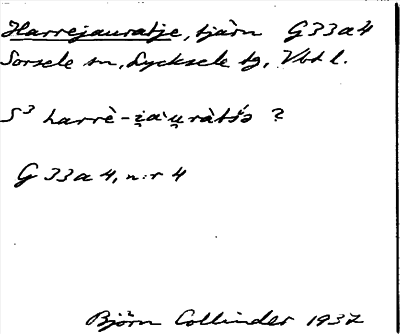 Harrejauratje, tjärn G33a4
Sorsele sn, Lycksele tg, Vbt l.
S³ harrè-i̯au̯ràts̀ə ?
G 33 a 4, n:r 4
Björn Collinder 1937